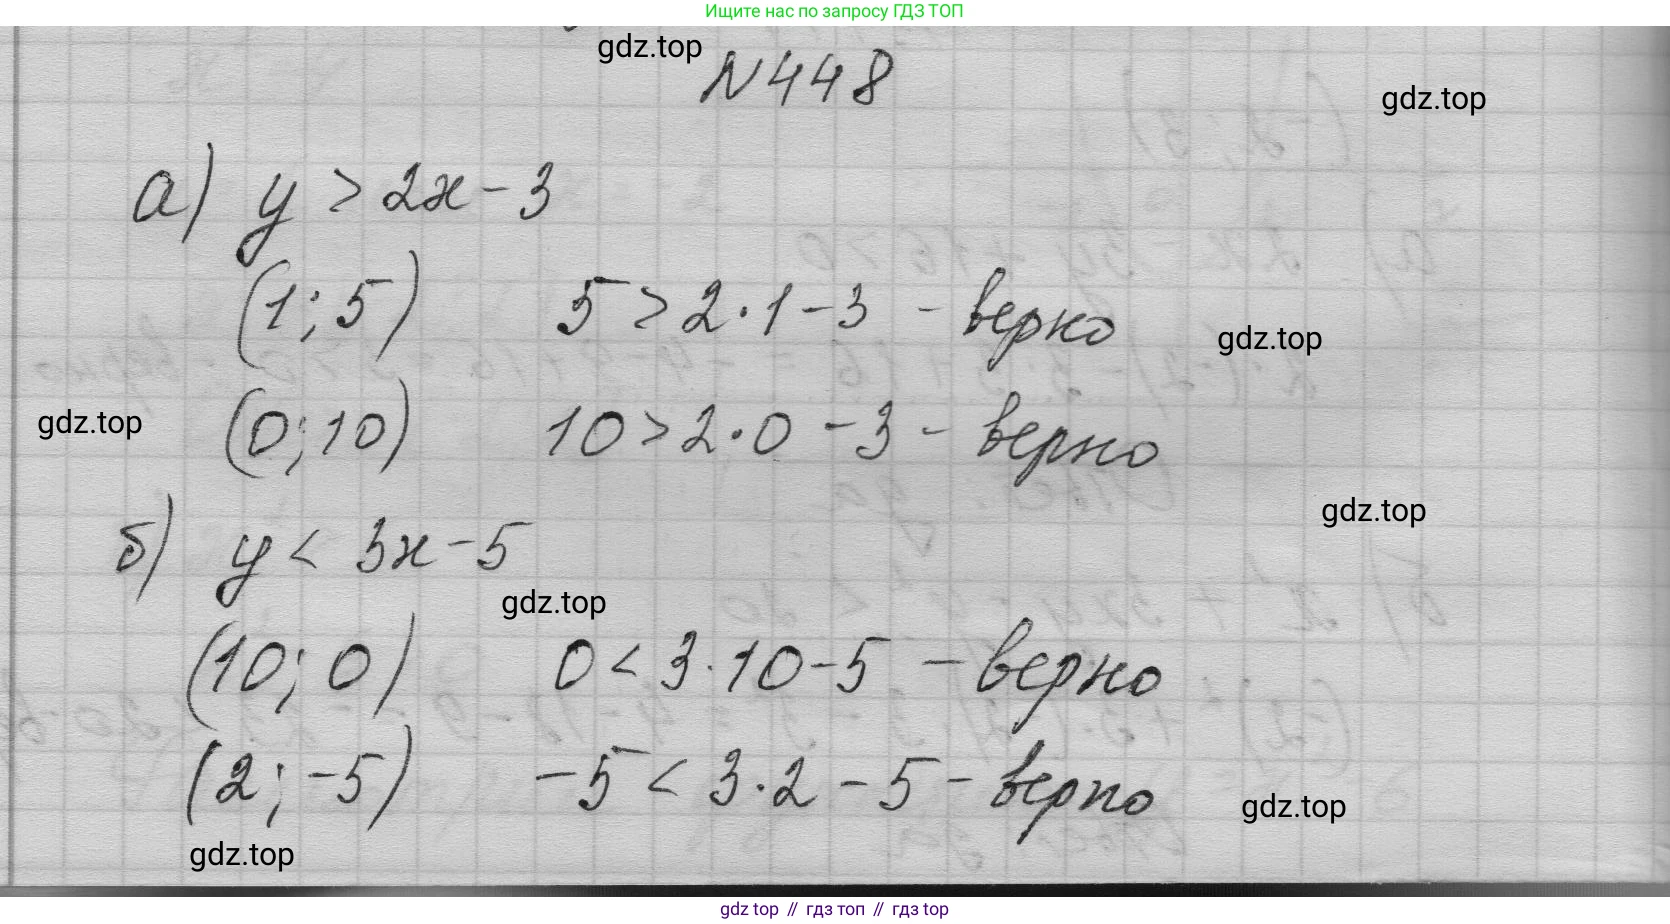 Ищите нас по запросу ГДЗ ТОП
gdz.top
N448
gdz.top
а) y > 2x - 3
(1; 5) 5 > 2·1 - 3 - верно
gdz.top
gdz.top
(0; 10) 10 > 2·0 - 3 - верно
gdz.top
б) y < 3x - 5
gdz.top
(10; 0) 0 < 3·10 - 5 - верно
(2; -5) -5 < 3·2 - 5 - верно
gdz.top
gdz.top
gdz top // гдз топ // гдз top